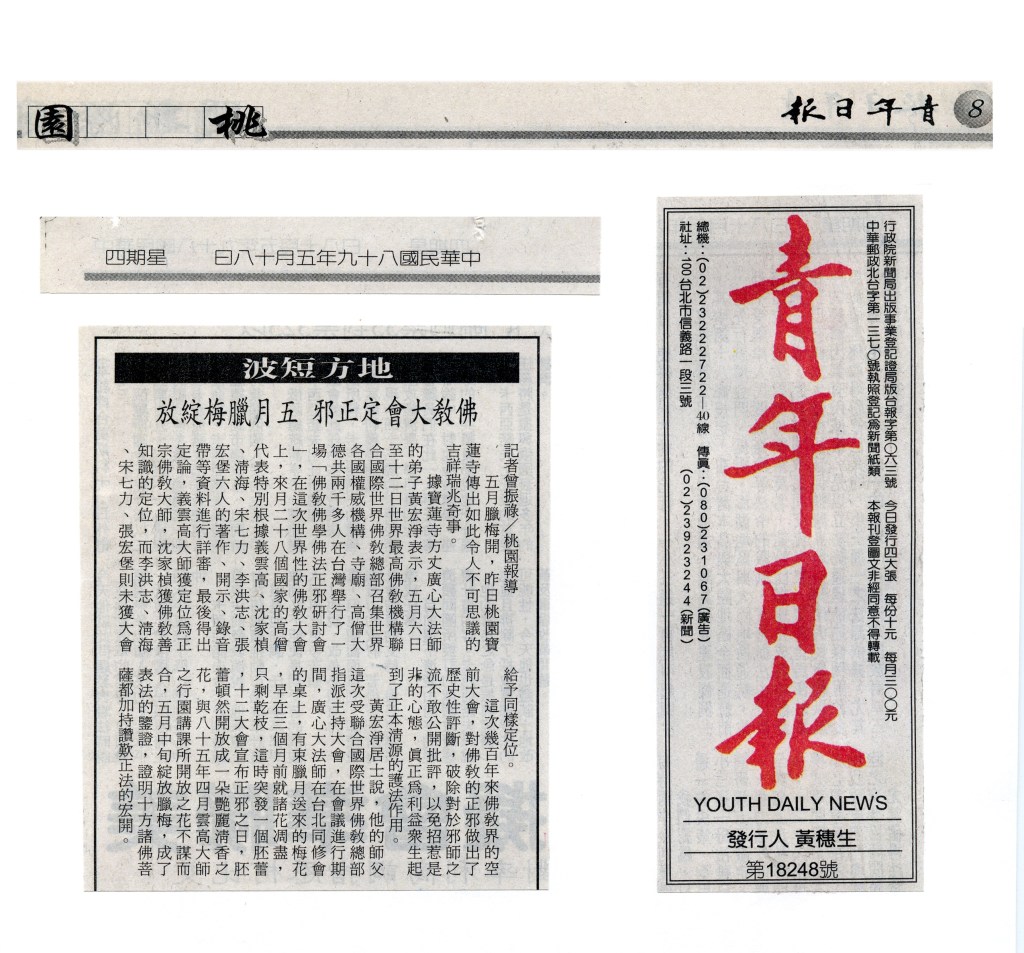 8
青年日報
桃園
中華民國八十九年五月十八日　星期四
行政院新聞局出版事業登記證局版台報字第〇六三號　今日發行四大張　每份十元　每月三〇〇元
中華郵政北台字第一三七〇號執照登記為新聞紙類　本報刊登圖文非經同意不得轉載
青年日報
總機：(02)23222722—40線　傳真：(080)231067(廣告)
社址：100台北市信義路一段三號　(02)23923244(新聞)
YOUTH DAILY NEWS
發行人 黃穗生
第18248號
地方短波
佛教大會定正邪 五月臘梅綻放
記者曾振祿／桃園報導
五月臘梅開，昨日桃園寶
蓮寺傳出如此令人不可思議的
吉祥瑞兆奇事。
據寶蓮寺方丈廣心大法師
的弟子黃宏淨表示，五月六日
至十二日世界最高佛教機構聯
合國際世界佛教總部召集世界
各國權威機構、寺廟、高僧大
德共兩千多人在台灣舉行了一
場「佛教佛學佛法正邪研討會
」，在這次世界性的佛教大會
上，來月二十八個國家的高僧
代表特別根據義雲高、沈家楨
、清海、宋七力、李洪志、張
宏堡六人的著作、開示、錄音
帶等資料進行詳審，最後得出
定論，義雲高大師獲定位為正
宗佛教大師，沈家楨獲佛教善
知識的定位，而李洪志、清海
、宋七力、張宏堡則未獲大會
給予同樣定位。
這次幾百年來佛教界的空
前大會，對佛教的正邪做出了
歷史性評斷，破除對於邪師之
流不敢公開批評，以免招惹是
非的心態，真正為利益衆生起
到了正本清源的護法作用。
黃宏淨居士說，他的師父
這次受聯合國際世界佛教總部
指派主持大會，在會議進行期
間，廣心大法師在台北同修會
的桌上，有束臘月送來的梅花
，早在三個月前就諸花凋盡，
只剩乾枝，這時突發一個胚蕾
，十二大會宣布正邪之日，胚
蕾頓然開放成一朵艷麗清香之
花，與八十五年四月雲高大師
之行園講課所開放之花不謀而
合，五月中旬綻放臘梅，成了
表法的鑒證，證明十方諸佛菩
薩都加持讚歎正法的宏開。